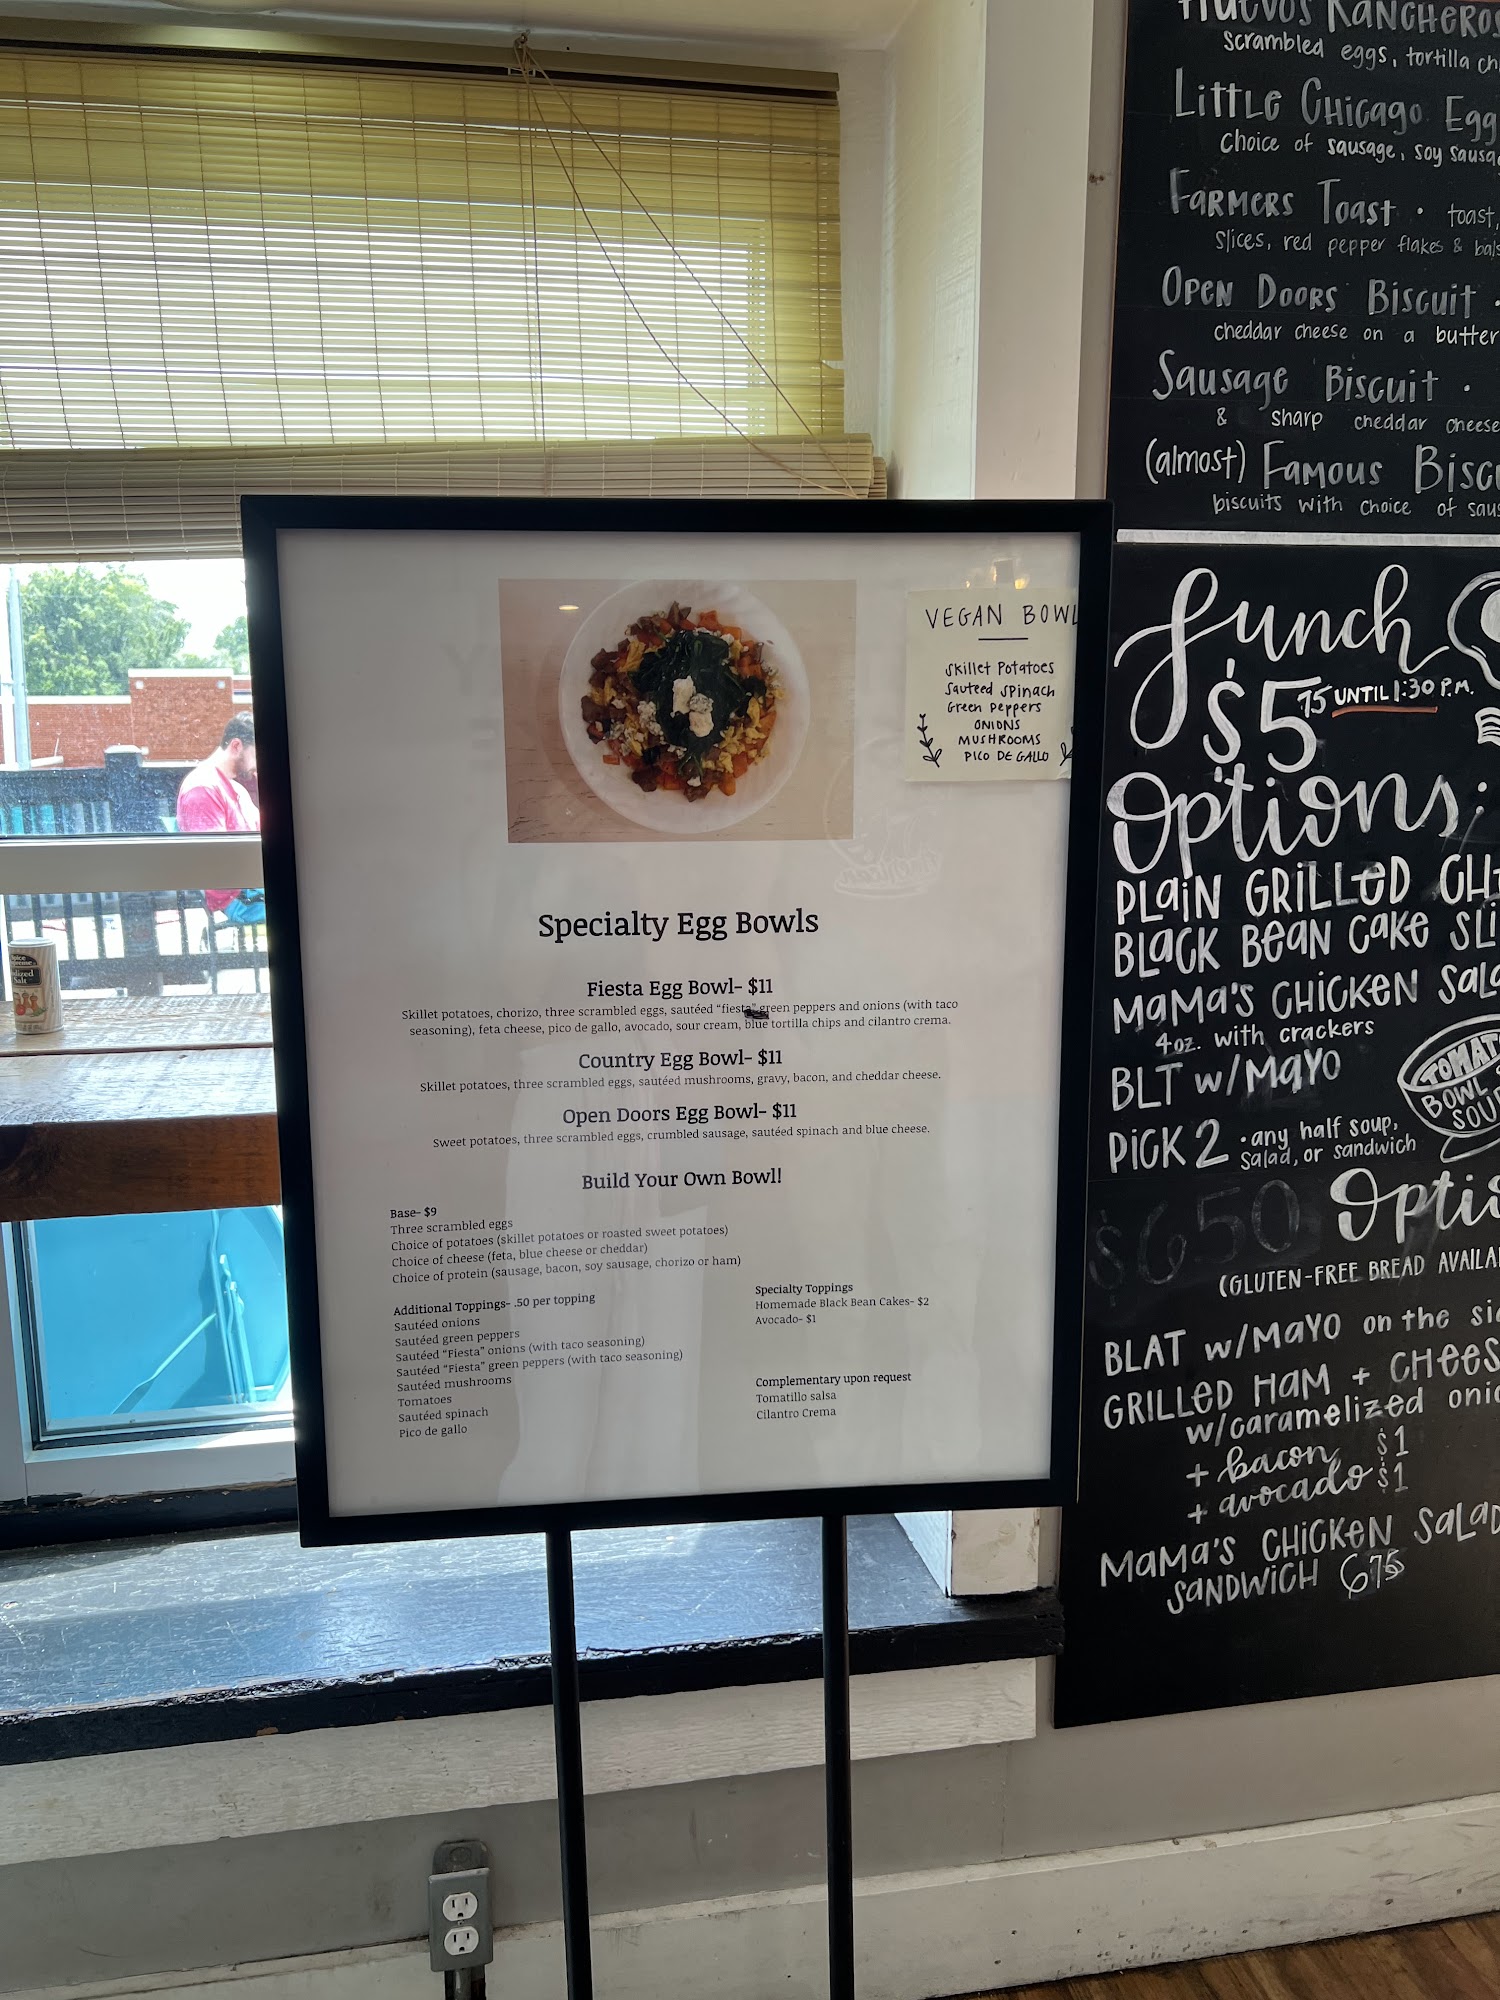 VEGAN BOWL
Skillet Potatoes
Sauteed Spinach
Green Peppers
ONIONS
MUSHROOMS
PICO DE GALLO
Specialty Egg Bowls
Fiesta Egg Bowl- $11
Skillet potatoes, chorizo, three scrambled eggs, sautéed “fiesta” green peppers and onions (with taco
seasoning), feta cheese, pico de gallo, avocado, sour cream, blue tortilla chips and cilantro crema.
Country Egg Bowl- $11
Skillet potatoes, three scrambled eggs, sautéed mushrooms, gravy, bacon, and cheddar cheese.
Open Doors Egg Bowl- $11
Sweet potatoes, three scrambled eggs, crumbled sausage, sautéed spinach and blue cheese.
Build Your Own Bowl!
Base- $9
Three scrambled eggs
Choice of potatoes (skillet potatoes or roasted sweet potatoes)
Choice of cheese (feta, blue cheese or cheddar)
Choice of protein (sausage, bacon, soy sausage, chorizo or ham)
Additional Toppings- .50 per topping
Sautéed onions
Sautéed green peppers
Sautéed “Fiesta” onions (with taco seasoning)
Sautéed “Fiesta” green peppers (with taco seasoning)
Sautéed mushrooms
Tomatoes
Sautéed spinach
Pico de gallo
Specialty Toppings
Homemade Black Bean Cakes- $2
Avocado- $1
Complementary upon request
Tomatillo salsa
Cilantro Crema
Huevos Rancheros
Scrambled eggs, tortilla
Little Chicago Egg
Choice of sausage, soy
Farmers Toast · toast,
slices, red pepper flakes &
Open Doors Biscuit ·
cheddar cheese on a butter
Sausage Biscuit ·
& sharp cheddar cheese
(almost) Famous
biscuits with choice of
Lunch
$5 75 UNTIL 1:30 P.M.
Options:
PLAIN GRILLED
BLACK BEAN CAKE
MAMA'S CHICKEN
4oz. with crackers
BLT w/MAYO
TOMATO
BOWL
SOUP
PICK 2 · any half soup,
salad, or sandwich
$650
(GLUTEN-FREE BREAD
BLAT w/MAYO on the
GRILLED HAM + CHEESE
w/caramelized
+ bacon $1
+ avocado $1
MAMA'S CHICKEN SALAD
SANDWICH 675